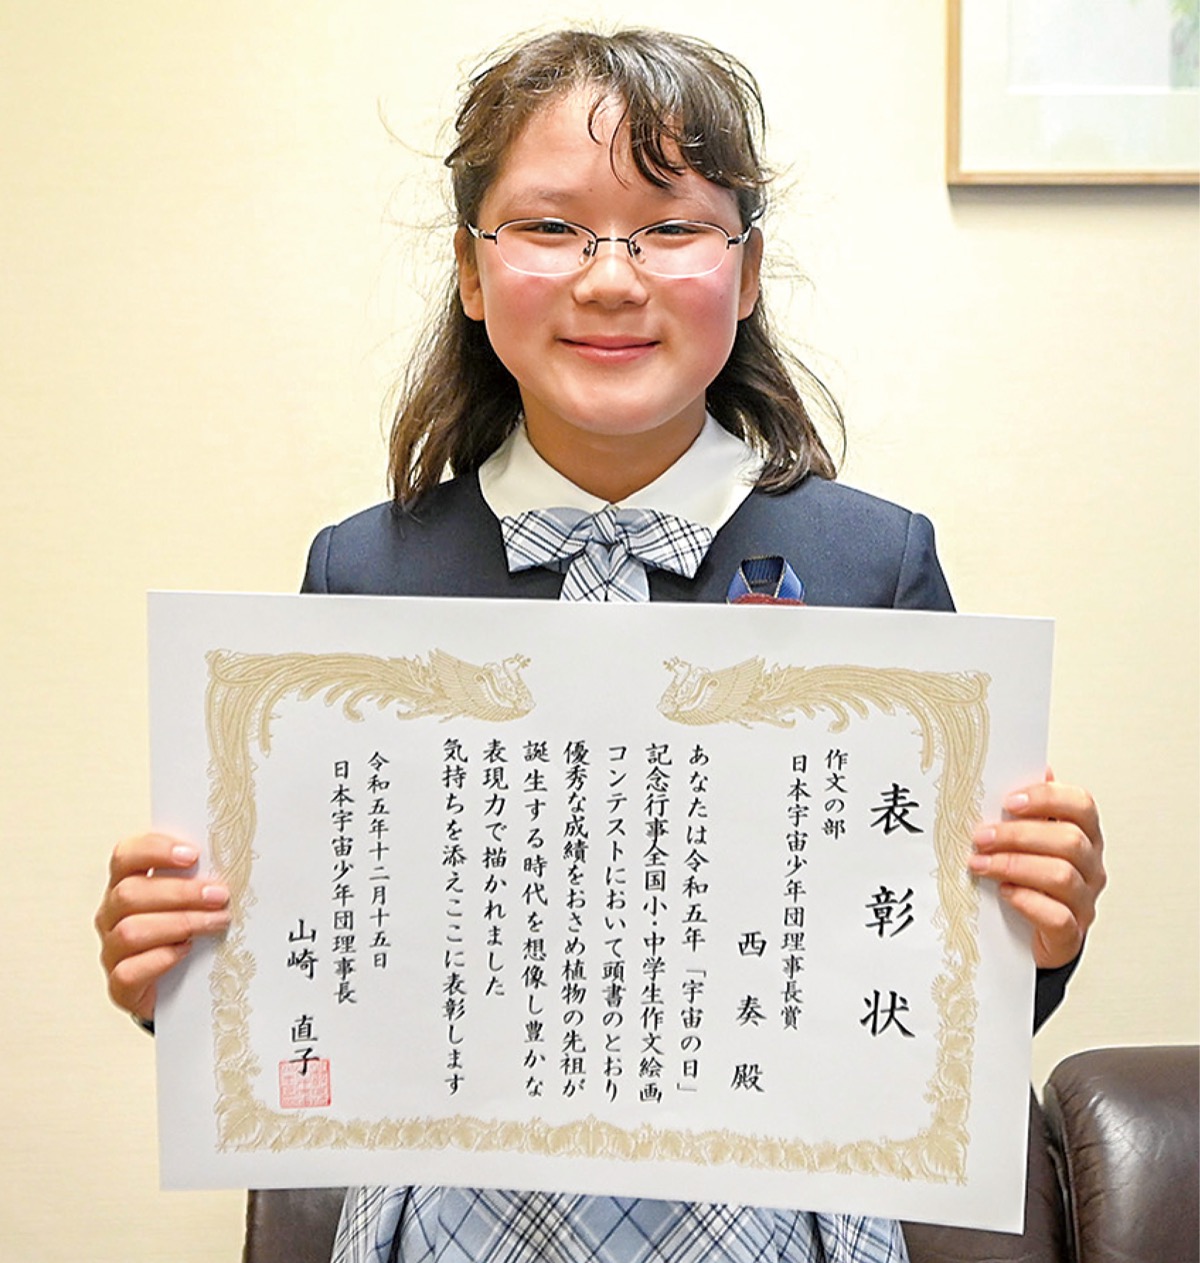 表彰状
作文の部
日本宇宙少年団理事長賞
西 奏 殿
あなたは令和五年「宇宙の日」
記念行事全国小・中学生作文絵画
コンテストにおいて頭書のとおり
優秀な成績をおさめ植物の先祖が
誕生する時代を想像し豊かな
表現力で描かれました
気持ちを添えここに表彰します
令和五年十二月十五日
日本宇宙少年団理事長
山崎 直子